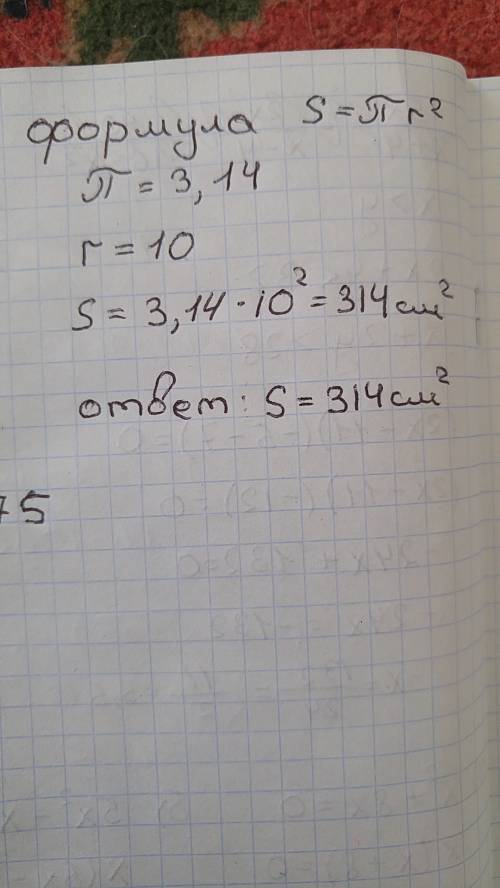 формула S = πr²
π = 3,14
r = 10
S = 3,14 · 10² = 314 см²
ответ: S = 314 см²
75